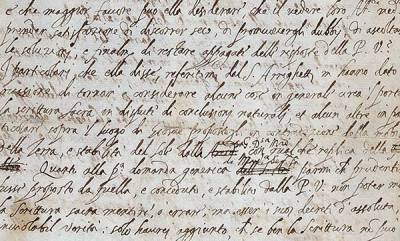 e che maggior favore può ella desiderare che il vedere loro Al. me
prender satisfazione di discorrer seco, di promuovergli dubbj, di ascoltar
le soluzioni, e finalm. di restare appagati dell risposte della P. V.ª
I particolari che ella disse, referitimi dal S. Arrighetti, mi hanno dato
occasione di tornar a considerare alcune cose in generale circa 'l portar
la scrittura sacra in dispute di conclusioni naturali, et alcun altre in par
ticolare sopra 'l luogo di Giosue proposto in contradizione della mobilità
della Terra, e stabilità del sole dalla replica della
Quanto alla pª domanda generica di parmi che prudentis
fusse proposto da quella e conceduto, e stabilito dalla P. V. non poter mai
la Scrittura sacra mentire, o errare, ma decreti d'assoluta,
inviolabil verità: solo haurei aggiunto, che se ben la Scrittura non può